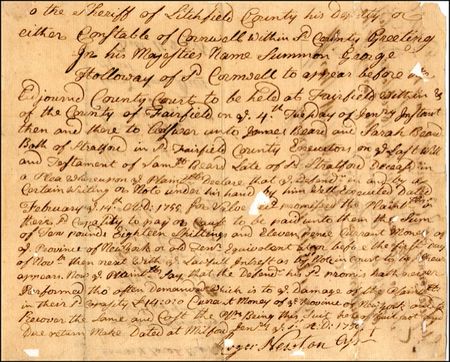 o the Sheriff of Litchfield County his Deputy or
either Constable of Cornwell Within Sd County Greeting
In his Majesties Name Summon George
Holloway of Sd Cornwell to appear before
County Court to be held at Fairfield within &
of the County of Fairfield on ye 4th Tuesday of Janry Instant
then and there to answer unto James Beard and Sarah Beard
Both of Stratford in Sd Fairfield County Executors on ye Last Will
and Testament of Samll Beard Late of Sd Stratford Deceasd in
a Plea Whereupon ye Plaintifs Declare that ye Defendt in and by a
Certain Writing or Note under his hand by him Well Executed Dated
February ye 14th AD: 1755 for Value promised the Plaintifs in
their Sd Capacity to pay or Cause to be paid unto them the Sum
of Ten Pounds Eighteen Shillings and Eleven pence Currant Money of
ye Province of New york or old Tenr Equivalent before the first Day
of Novr then next With Lawfull Interest as by Note in Court to be
appears Now ye Plaintifs Say that the Defendt his Sd promis hath never
Performed tho often Demanded Which is to ye Damage of the Plaintifs
in their Sd Capasity Currant Money of ye Province of New york and to
Recover the Same and Cost the Plaintifs Bring this Suit hereof fail not
Due return Make Dated at Milford
Roger Newton